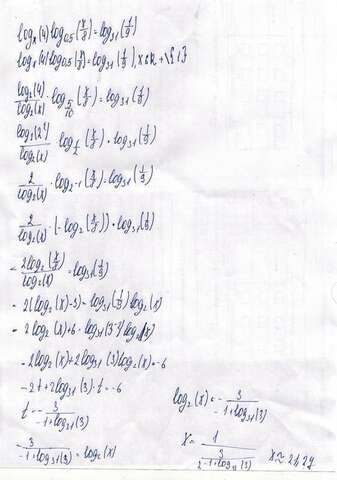 logₓ(4)log₀,₅(x/8)=log₃₁(1/9)
logₓ(4)log₀,₅(x/8)=log₃₁(1/9), x∈R+\{1}
log₂(4)/log₂(x)·log₅/₁₀(x/8)=log₃₁(1/9)
log₂(2²)/log₂(x) log₁/₂(x/8)=log₃₁(1/9)
2/log₂(x)·log₂-1(x/8)=log₃₁(1/9)
2/log₂(x)·(-log₂(x/8))=log₃₁(1/9)
-2log₂(x/8)/log₂(x)=log₃₁(1/9)
-2(log₂(x)-3)=log₃₁(1/9)log₂(x)
-2log₂(x)+6=log₃₁(3-²)log₂(x)
-2log₂(x)+2log₃₁(3)log₂(x)=-6
-2t+2log₃₁(3)·t=-6
t=-3/-1+log₃₁(3)
-3/-1+log₃₁(3)=log₂(x)
log₂(x)=-3/-1+log₃₁(3)
x=1/2 3/-1+log₃₁(3)
x≈21,29